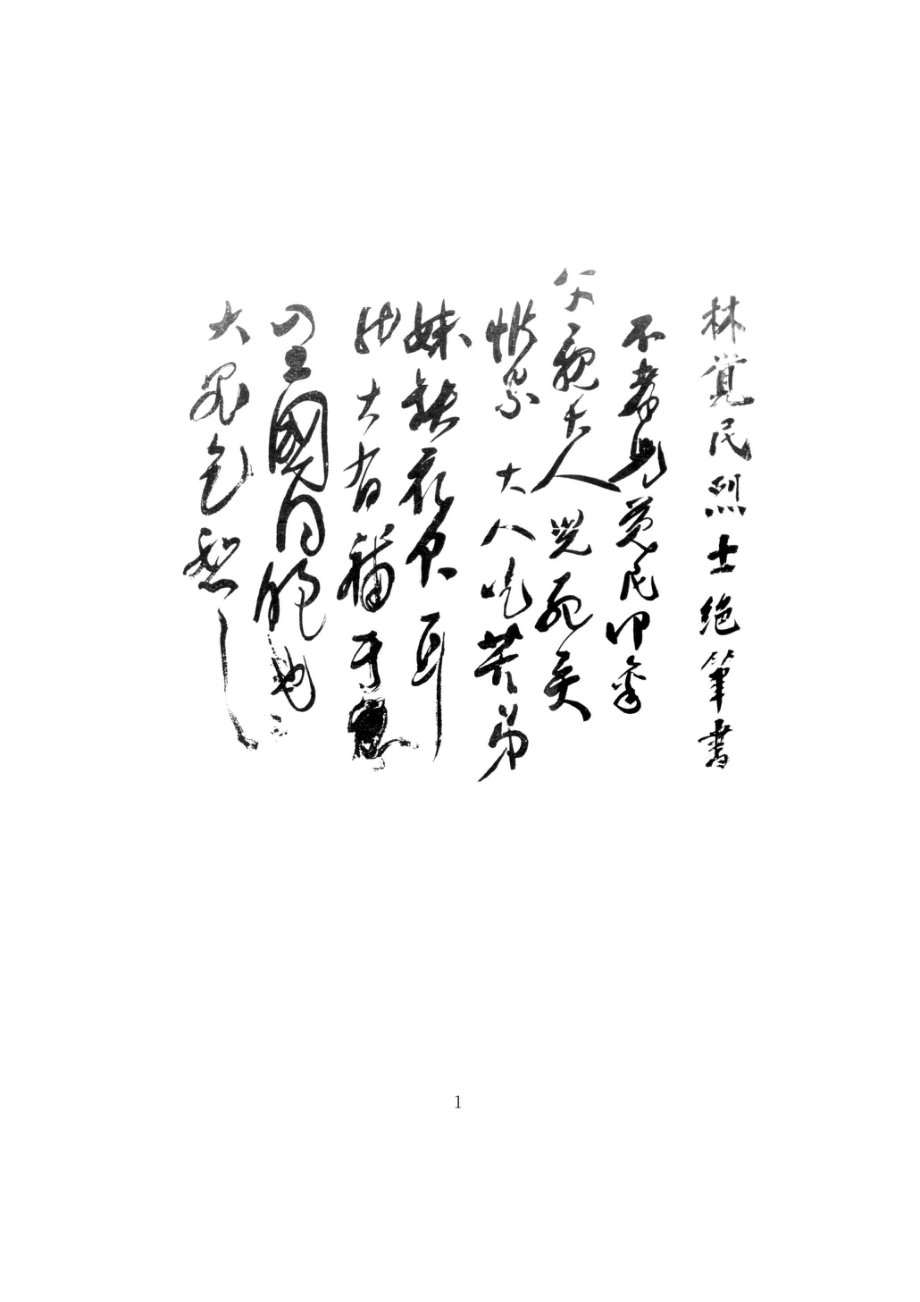 林覚民烈士绝筆書
不孝兒覚民叩禀
父親大人兒死矣
惟累大人吃苦弟
妹缺衣食耳
然大有補于
全國同胞也
大罪乞恕之
1